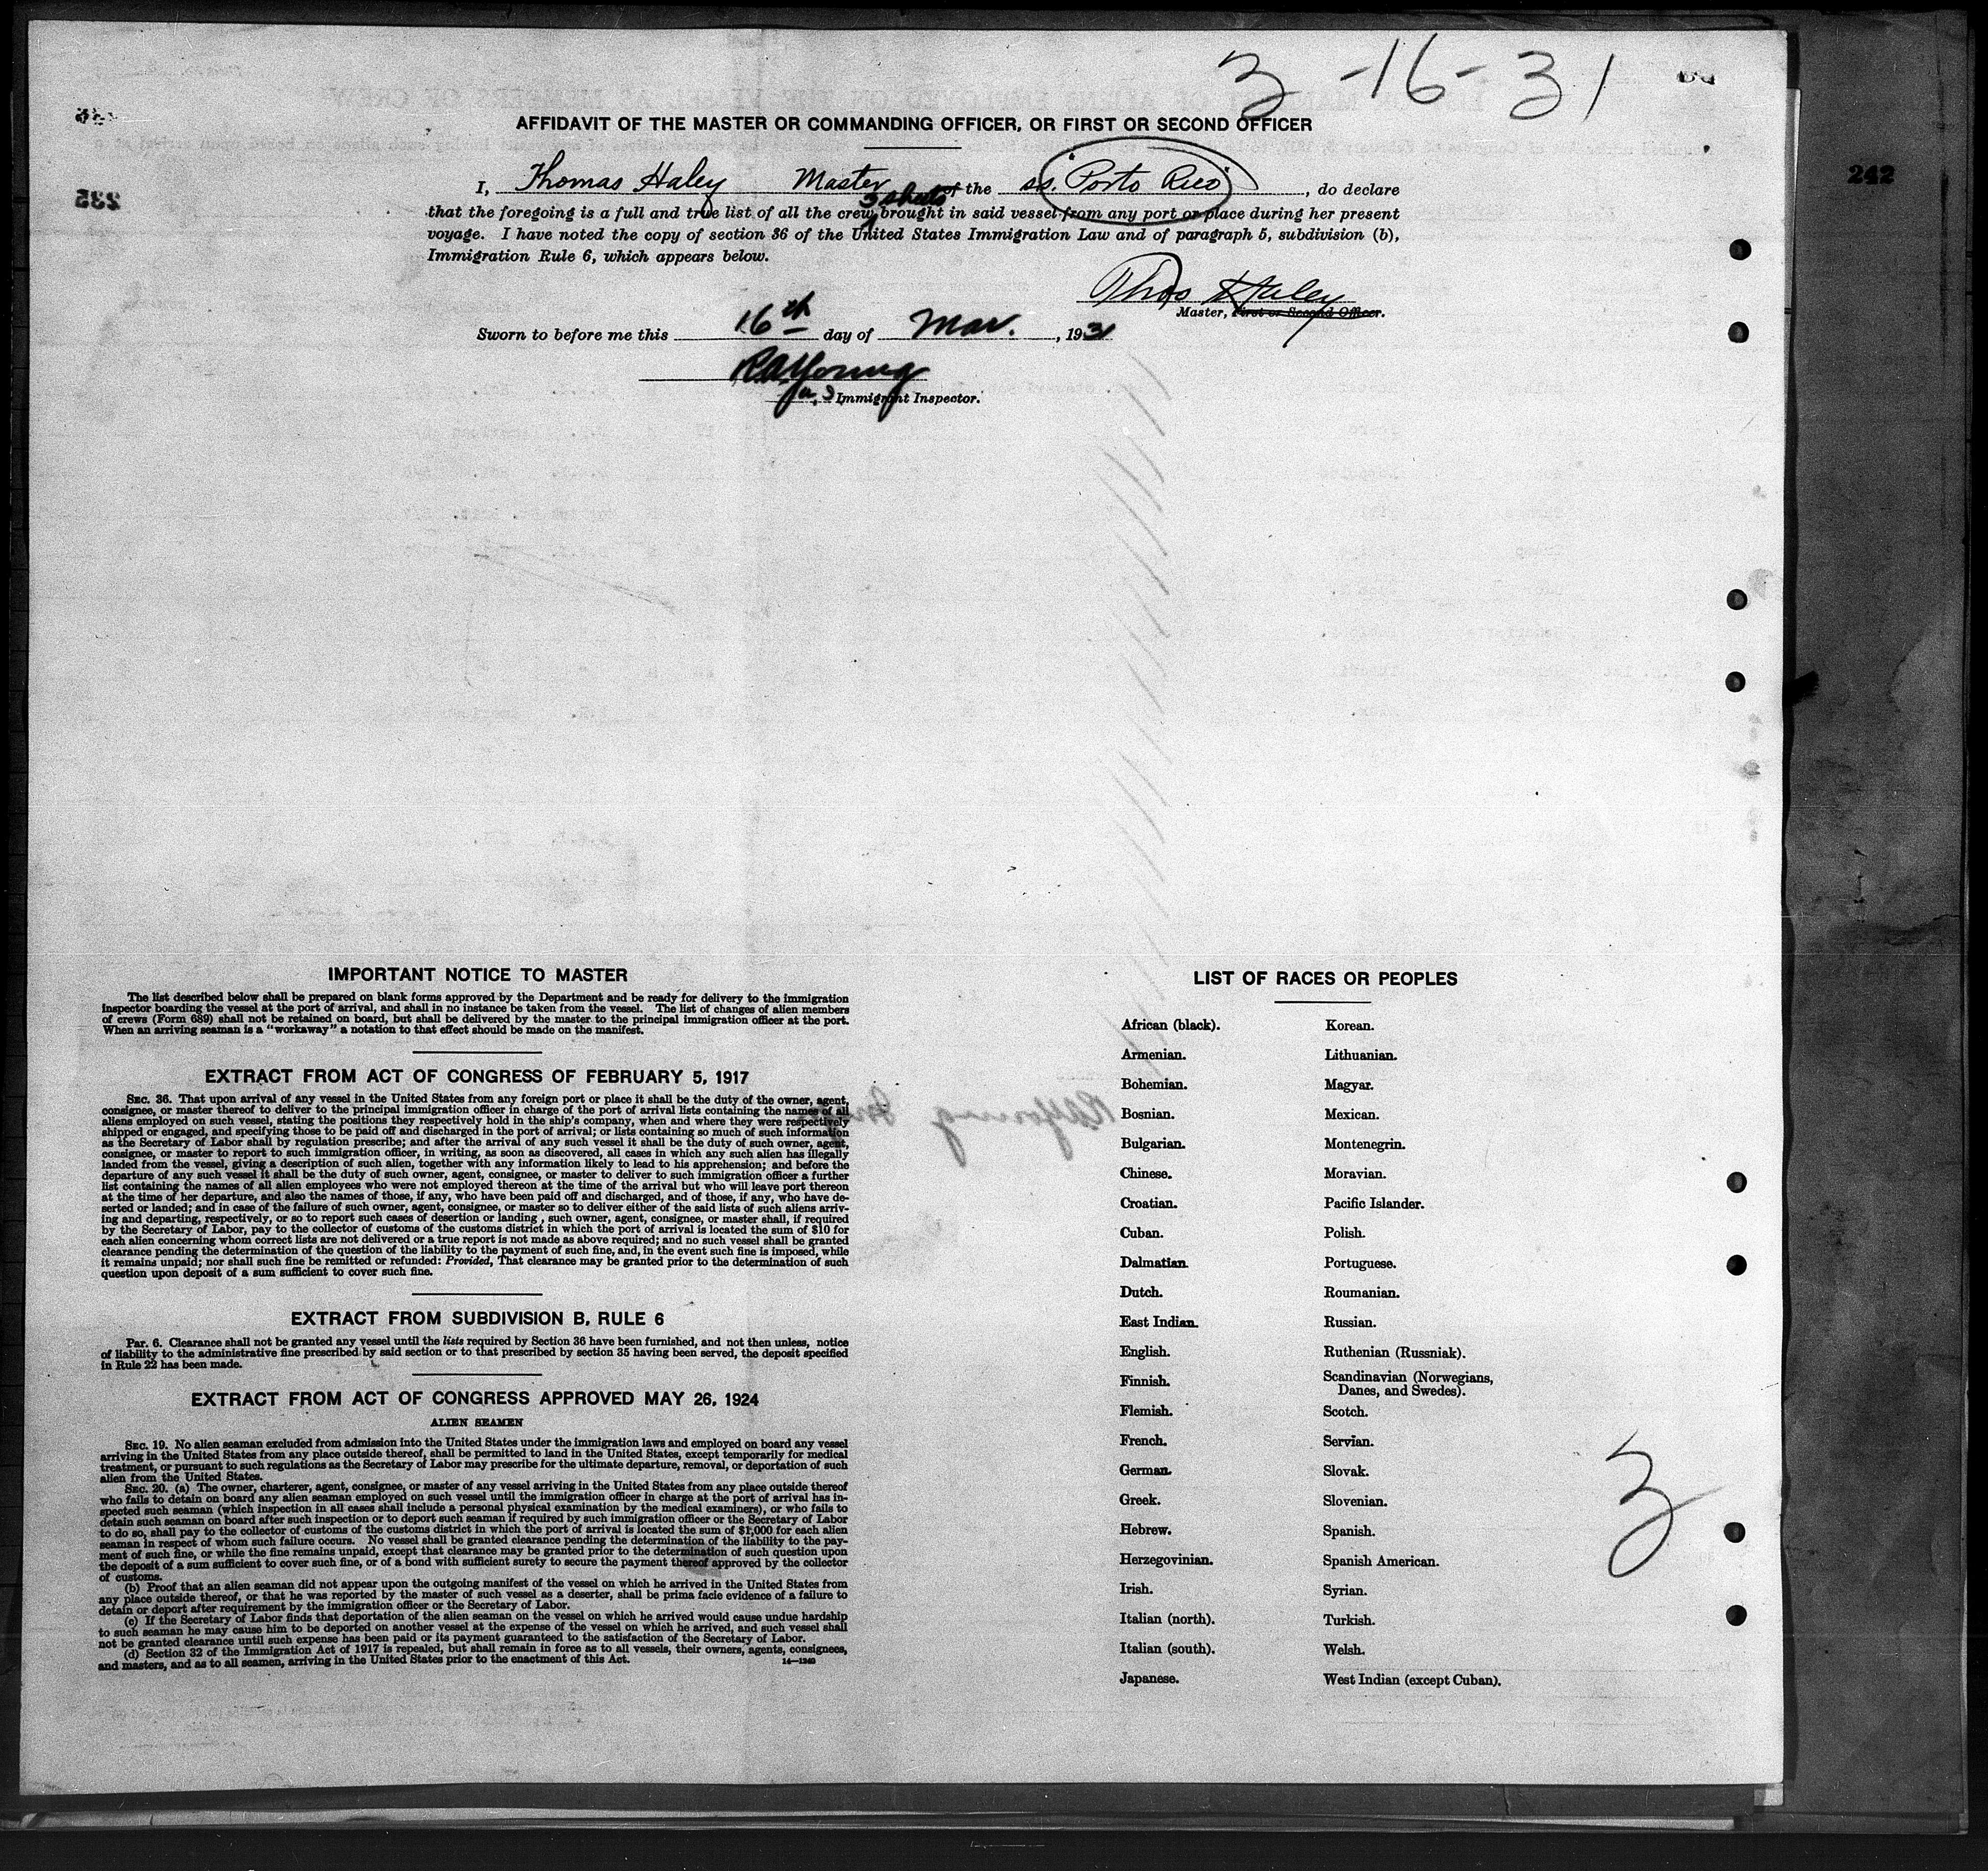 3-16-31
AFFIDAVIT OF THE MASTER OR COMMANDING OFFICER, OR FIRST OR SECOND OFFICER
242
235
I, Thomas Haley Master of the ss. "Porto Rico", do declare
3 sheets
that the foregoing is a full and true list of all the crew brought in said vessel from any port or place during her present
voyage. I have noted the copy of section 36 of the United States Immigration Law and of paragraph 5, subdivision (b),
Immigration Rule 6, which appears below.
Thos Haley
Master, First or Second Officer.
Sworn to before me this 16th day of Mar., 1931
RAYoung
Immigrant Inspector.
IMPORTANT NOTICE TO MASTER
The list described below shall be prepared on blank forms approved by the Department and be ready for delivery to the immigration
inspector boarding the vessel at the port of arrival, and shall in no instance be taken from the vessel. The list of changes of alien members
of crews (Form 689) shall not be retained on board, but shall be delivered by the master to the principal immigration officer at the port.
When an arriving seaman is a "workaway" a notation to that effect should be made on the manifest.
EXTRACT FROM ACT OF CONGRESS OF FEBRUARY 5, 1917
SEC. 36. That upon arrival of any vessel in the United States from any foreign port or place it shall be the duty of the owner, agent,
consignee, or master thereof to deliver to the principal immigration officer in charge of the port of arrival lists containing the names of all
aliens employed on such vessel, stating the positions they respectively hold in the ship's company, when and where they were respectively
shipped or engaged, and specifying those to be paid off and discharged in the port of arrival; or lists containing so much of such information
as the Secretary of Labor shall by regulation prescribe; and after the arrival of any such vessel it shall be the duty of such owner, agent,
consignee, or master to report to such immigration officer, in writing, as soon as discovered, all cases in which any such alien has illegally
landed from the vessel, giving a description of such alien, together with any information likely to lead to his apprehension; and before the
departure of any such vessel it shall be the duty of such owner, agent, consignee, or master to deliver to such immigration officer a further
list containing the names of all alien employees who were not employed thereon at the time of the arrival but who will leave port thereon
at the time of her departure, and also the names of those, if any, who have been paid off and discharged, and of those, if any, who have de-
serted or landed; and in case of the failure of such owner, agent, consignee, or master so to deliver either of the said lists of such aliens arriv-
ing and departing, respectively, or so to report such cases of desertion or landing, such owner, agent, consignee, or master shall, if required
by the Secretary of Labor, pay to the collector of customs of the customs district in which the port of arrival is located the sum of $10 for
each alien concerning whom correct lists are not delivered or a true report is not made as above required; and no such vessel shall be granted
clearance pending the determination of the question of the liability to the payment of such fine, and, in the event such fine is imposed, while
it remains unpaid; nor shall such fine be remitted or refunded: Provided, That clearance may be granted prior to the determination of such
question upon deposit of a sum sufficient to cover such fine.
EXTRACT FROM SUBDIVISION B, RULE 6
Par. 6. Clearance shall not be granted any vessel until the lists required by Section 36 have been furnished, and not then unless, notice
of liability to the administrative fine prescribed by said section or to that prescribed by section 35 having been served, the deposit specified
in Rule 22 has been made.
EXTRACT FROM ACT OF CONGRESS APPROVED MAY 26, 1924
ALIEN SEAMEN
SEC. 19. No alien seaman excluded from admission into the United States under the immigration laws and employed on board any vessel
arriving in the United States from any place outside thereof, shall be permitted to land in the United States, except temporarily for medical
treatment, or pursuant to such regulations as the Secretary of Labor may prescribe for the ultimate departure, removal, or deportation of such
alien from the United States.
SEC. 20. (a) The owner, charterer, agent, consignee, or master of any vessel arriving in the United States from any place outside thereof
who fails to detain on board any alien seaman employed on such vessel until the immigration officer in charge at the port of arrival has in-
spected such seaman (which inspection in all cases shall include a personal physical examination by the medical examiners), or who fails to
detain such seaman on board after such inspection or to deport such seaman if required by such immigration officer or the Secretary of Labor
to do so, shall pay to the collector of customs of the customs district in which the port of arrival is located the sum of $1,000 for each alien
seaman in respect of whom such failure occurs. No vessel shall be granted clearance pending the determination of the liability to the pay-
ment of such fine, or while the fine remains unpaid, except that clearance may be granted prior to the determination of such question upon
the deposit of a sum sufficient to cover such fine, or of a bond with sufficient surety to secure the payment thereof approved by the collector
of customs.
(b) Proof that an alien seaman did not appear upon the outgoing manifest of the vessel on which he arrived in the United States from
any place outside thereof, or that he was reported by the master of such vessel as a deserter, shall be prima facie evidence of a failure to
detain or deport after requirement by the immigration officer or the Secretary of Labor.
(c) If the Secretary of Labor finds that deportation of the alien seaman on the vessel on which he arrived would cause undue hardship
to such seaman he may cause him to be deported on another vessel at the expense of the vessel on which he arrived, and such vessel shall
not be granted clearance until such expense has been paid or its payment guaranteed to the satisfaction of the Secretary of Labor.
(d) Section 32 of the Immigration Act of 1917 is repealed, but shall remain in force as to all vessels, their owners, agents, consignees,
and masters, and as to all seamen, arriving in the United States prior to the enactment of this Act.
14—1240
LIST OF RACES OR PEOPLES
African (black).
Armenian.
Bohemian.
Bosnian.
Bulgarian.
Chinese.
Croatian.
Cuban.
Dalmatian.
Dutch.
East Indian.
English.
Finnish.
Flemish.
French.
German.
Greek.
Hebrew.
Herzegovinian.
Irish.
Italian (north).
Italian (south).
Japanese.
Korean.
Lithuanian.
Magyar.
Mexican.
Montenegrin.
Moravian.
Pacific Islander.
Polish.
Portuguese.
Roumanian.
Russian.
Ruthenian (Russniak).
Scandinavian (Norwegians,
Danes, and Swedes).
Scotch.
Servian.
Slovak.
Slovenian.
Spanish.
Spanish American.
Syrian.
Turkish.
Welsh.
West Indian (except Cuban).
3